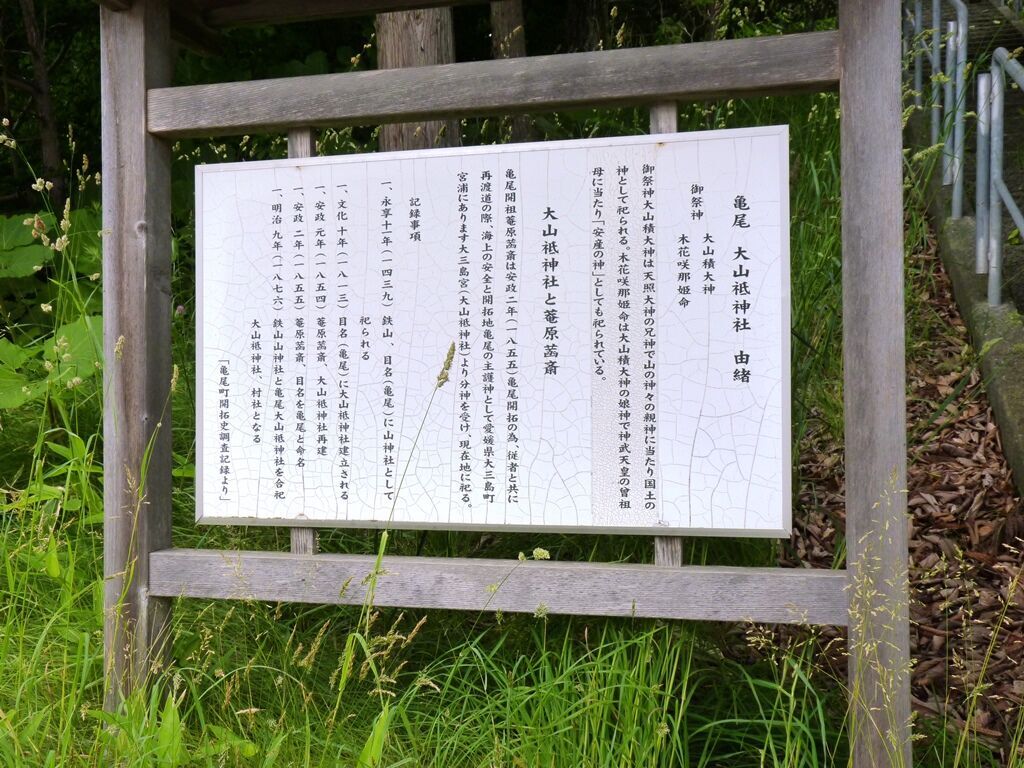 亀尾 大山祗神社 由緒
御祭神
大山積大神
木花咲那姫命
御祭神大山積大神は天照大神の兄神で山の神々の親神に当たり国土の
神として祀られる。木花咲那姫命は大山積大神の娘神で神武天皇の曽祖
母に当たり「安産の神」としても祀られている。
大山祗神社と菴原菡斎
亀尾開祖菴原菡斎は安政二年(一八五五)亀尾開拓の為、従者と共に
再渡道の際、海上の安全と開拓地亀尾の主護神として愛媛県大三島町
宮浦にあります大三島宮(大山祗神社)より分神を受け、現在地に祀る。
記録事項
一、永享十一年(一四三九)鉄山、目名(亀尾)に山神社として
祀られる
一、文化 十年(一八一三)目名(亀尾)に大山祗神社建立される
一、安政 元年(一八五四)菴原菡斎、大山祗神社再建
一、安政 二年(一八五五)菴原菡斎、目名を亀尾と命名
一、明治 九年(一八七六)鉄山山神社と亀尾大山祗神社を合祀
大山祗神社、村社となる
「亀尾町開拓史調査記録より」